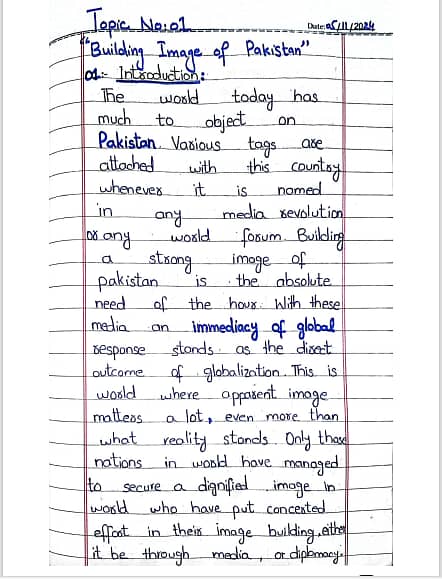 Topic No:01
Date: 05/11/2024
"Building Image of Pakistan"
01:- Introduction:
The world today has
much to object on
Pakistan. Various tags are
attached with this country
whenever it is named
in any media revolution
or any world forum. Building
a strong image of
pakistan is the absolute
need of the hour. With these
media an immediacy of global
response stands as the direct
outcome of globalization. This is
world where apparent image
matters a lot, even more than
what reality stands. Only those
nations in world have managed
to secure a dignified image in
world who have put concerted
effort in their image building, either
it be through media, or diplomacy.